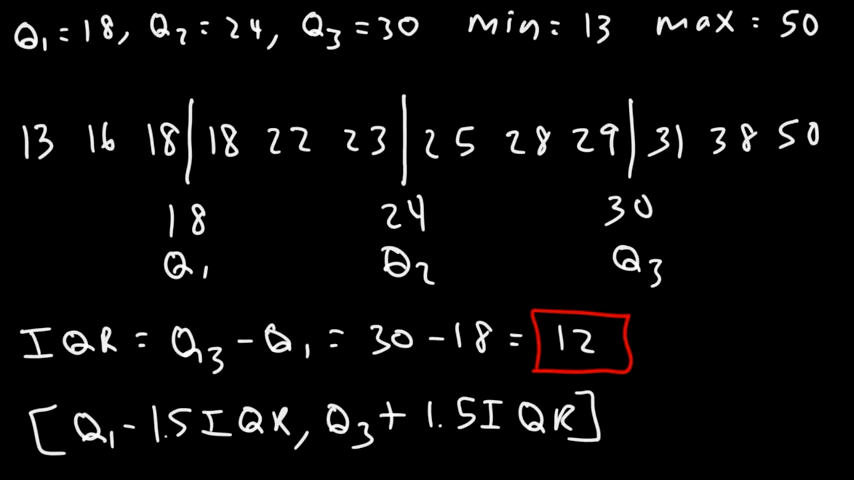 Q₁ = 18, Q₂ = 24, Q₃ = 30 min = 13 max = 50
13 16 18 | 18 22 23 | 25 28 29 | 31 38 50
18 24 30
Q₁ Q₂ Q₃
IQR = Q₃ - Q₁ = 30 - 18 = 12
[Q₁ - 1.5 IQR, Q₃ + 1.5 IQR]